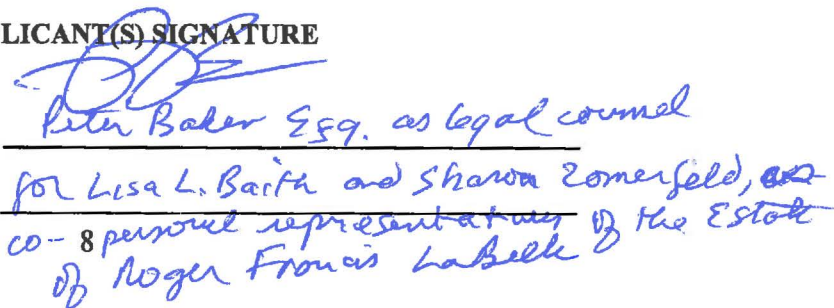 LICANT(S) SIGNATURE
Peter Baker Esq. as legal counsel
for Lisa L. Baith and Sharon Zomerfeld, as
co- 8 personal representatives of the Estate
of Roger Francis LaBelle